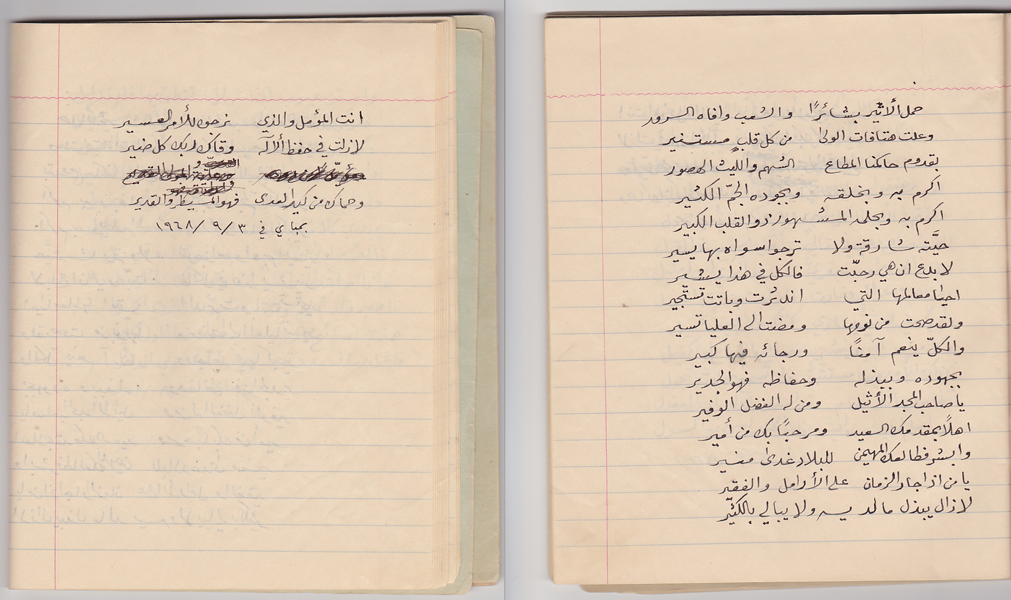 حمل الأثير بشائرًا والشعب وافاه السرور
وعلت هتافات الولا من كل قلبٍ مستنير
بقدوم حاكمنا المطاع الشهم والليث الهصور
اكرم به وبخلقه وبجوده الجمّ الكثير
اكرم به وبحلمه المشهور ذو القلب الكبير
حيّته شارقة ولا ترجو سواه بها يسير
لا بدع ان هي رحبّت فالكل في هذا يشير
احيا معالمها التي اندثرت وباتت تستجير
ولقد صحت من نومها ومضت الى العليا تسير
والكلّ ينعم آمنًا ورجائه فيها كبير
بجهوده وببذله وحفاظه فهو الجدير
يا صاحب المجد الأثيل ومن له الفضل الوفير
اهلًا بمقدمك السعيد ومرحبًا بك من أمير
وابشر فطالعك المهيمن للبلاد غدى منير
يا من اذا جار الزمان على الأرامل والفقير
لا زال يبذل ما لديه ولا يبالي بالكثير
انت المؤمل والذي نرجوه للأمر العسير
لا زلت في حفظ الآله ووقاك ربك كل ضير
وحماك من كيد العدى فهو المسيطر والقدير
بمباي في ٣/٩/١٩٦٨